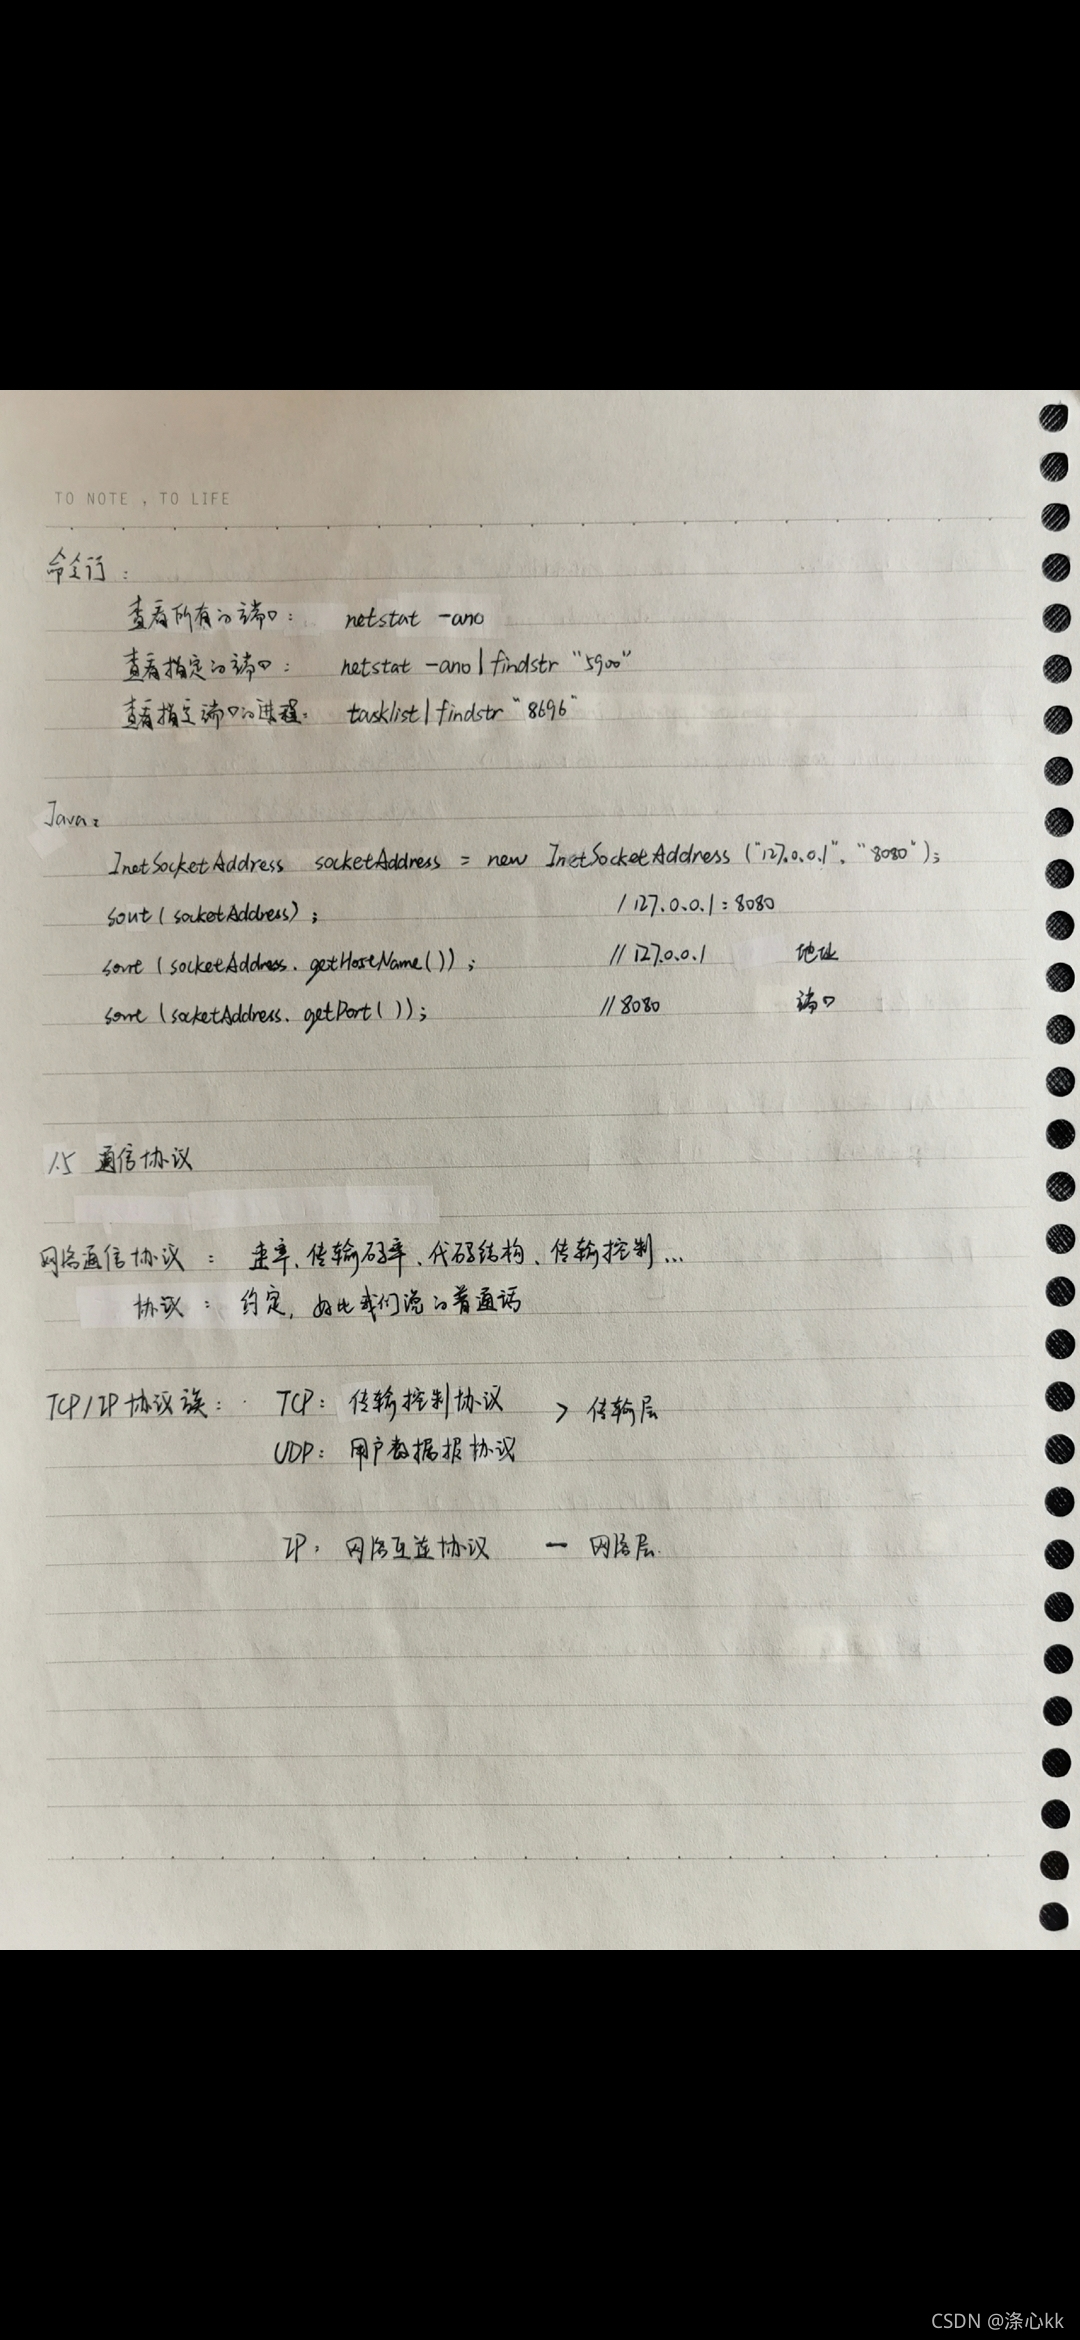 TO NOTE , TO LIFE
命令行：
查看所有的端口： netstat -ano
查看指定的端口： netstat -ano | findstr "5900"
查看指定端口的进程： tasklist | findstr "8696"
Java：
InetSocketAddress socketAddress = new InetSocketAddress ("127.0.0.1", "8080");
sout (socketAddress); / 127.0.0.1 : 8080
sout (socketAddress. getHostName()); // 127.0.0.1 地址
sout (socketAddress. getPort()); // 8080 端口
1.5 通信协议
网络通信协议： 速率、传输码率、代码结构、传输控制...
协议： 约定，好比我们说的普通话
TCP/IP 协议族： TCP： 传输控制协议 > 传输层
UDP： 用户数据报协议
IP： 网络互连协议 — 网络层.
CSDN @涤心kk